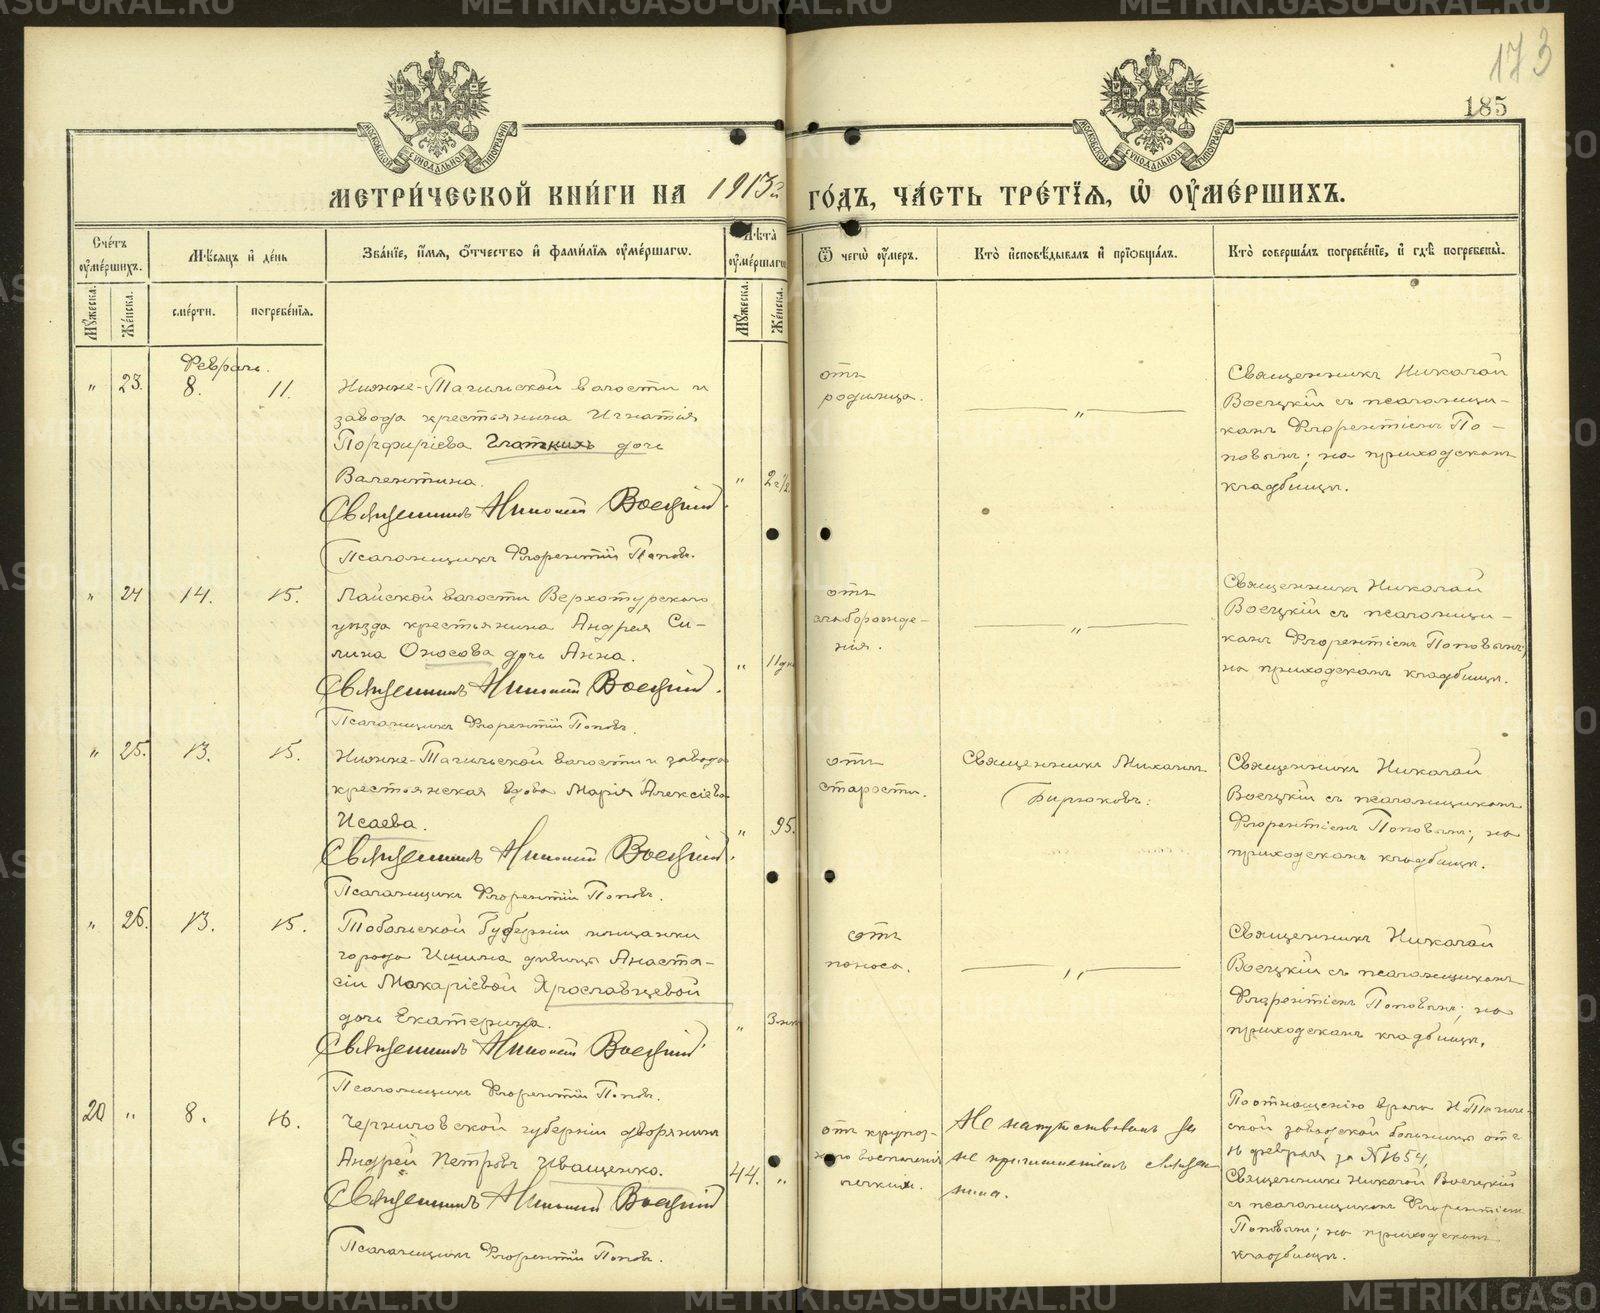 173
185
МОСКОВСКОЙ СѴНОДАЛЬНОЙ ТИПОГРАФІИ
МОСКОВСКОЙ СѴНОДАЛЬНОЙ ТИПОГРАФІИ
МЕТРИ́ЧЕСКОЙ КНИ́ГИ НА 1913й ГО́ДЪ, ЧА́СТЬ ТРЕ́ТІЯ, Ѡ ОУМЕ́РШИХЪ.
Сче́тъ оуме́ршихъ.
Мѣ́сяцъ и де́нь
Зва́ніе, и́мя, о́тчество и фами́лія оуме́ршагѡ.
Лѣта̀ оуме́ршагѡ
Ѿ чегѡ̀ оу́меръ.
Кто̀ исповѣ́дывалъ и пріобща́лъ.
Кто̀ соверша́лъ погребе́ніе, и гдѣ̀ погребены̀.
Мꙋ́жеска.
Же́нска.
сме́рти.
погребе́нія.
Мꙋ́жеска.
Же́нска.
Февраль.
" 23. 8. 11.
Нижне-Тагильской волости и
завода крестьянина Игнатія
Порфиріева Глаткихъ дочь
Валентина.
" 2 г ½
Священникъ Николай Воецкій.
Псаломщикъ Флорентій Поповъ.
отъ
родимца.
"
Священникъ Николай
Воецкій съ псаломщи-
комъ Флорентіемъ По-
повымъ; на приходскомъ
кладбищѣ.
" 24 14. 15.
Лайской волости Верхотурскаго
уѣзда крестьянина Андрея Си-
лина Оносова дочь Анна.
" 11 дн
Священникъ Николай Воецкій.
Псаломщикъ Флорентій Поповъ.
отъ
слаборожде-
нія.
"
Священникъ Николай
Воецкій съ псаломщи-
комъ Флорентіемъ Поповымъ;
на приходскомъ кладбищѣ.
" 25. 13. 15.
Нижне-Тагильской волости и завода
крестьянская вдова Марія Алексіева
Исаева.
" 95.
Священникъ Николай Воецкій.
Псаломщикъ Флорентій Поповъ.
отъ
старости.
Священникъ Михаилъ
Бирюковъ.
Священникъ Николай
Воецкій съ псаломщикомъ
Флорентіемъ Поповымъ; на
приходскомъ кладбищѣ.
" 26. 13. 15.
Тобольской Губерніи мѣщанки
города Ишима дѣвицы Анаста-
сіи Макаріевой Ярославцевой
дочь Екатерина.
" 3 мѣс
Священникъ Николай Воецкій.
Псаломщикъ Флорентій Поповъ.
отъ
поноса.
"
Священникъ Николай
Воецкій съ псаломщикомъ
Флорентіемъ Поповымъ; на
приходскомъ кладбищѣ.
20 " 8. 16.
Черниговской губерніи дворянинъ
Андрей Петровъ Иващенко.
44. "
Священникъ Николай Воецкій
Псаломщикъ Флорентій Поповъ.
отъ крупоз-
наго воспаленія
легкихъ.
Не напутствованъ за
не приглашеніемъ священ
ника.
По отношенію врача Н-Тагиль-
ской заводской больницы отъ
16 февраля за №1654,
Священникъ Николай Воецкій
съ псаломщикомъ Флорентіемъ
Поповымъ; на приходскомъ
кладбищѣ.
METRIKI.GASO-URAL.RU